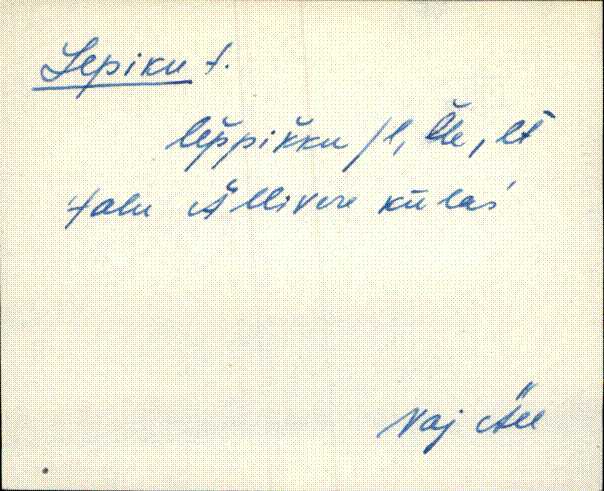 Lepiku t.
lep̆pik̆ku /l, l̆le, lt
talu Ällivere külas
Vaj Äll